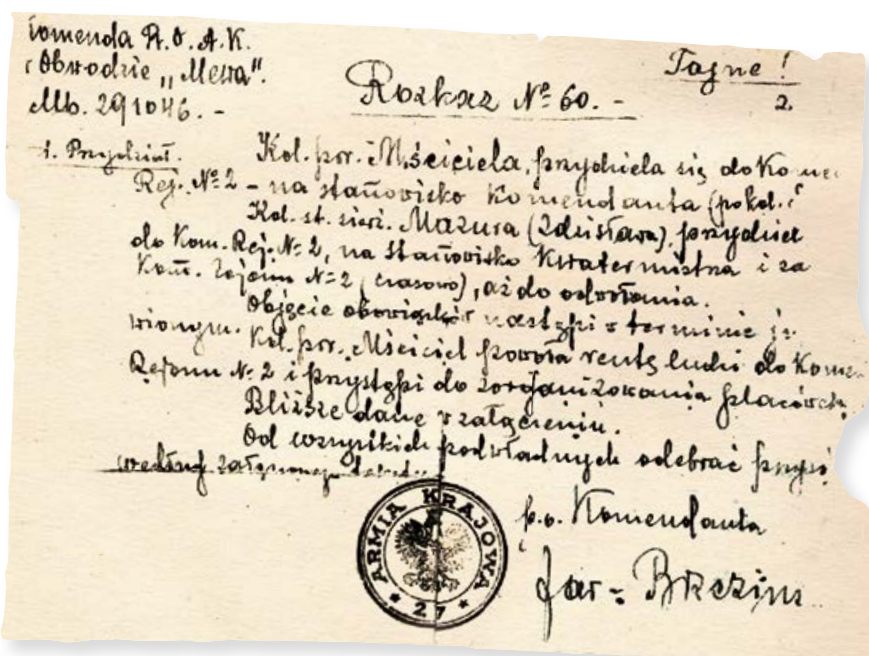 Komenda R.O.A.K.
Obwodzie „Mewa”.
Mb. 291046. -
Tajne!
2.
Rozkaz Nº 60. -
1. Przydział.
Kol. por. Mściciela, przydziela się do Kome
Rej. Nº 2 - na stanowisko Komendanta (po kol.
Kol. st. sierż. Mazura (Zdzisława), przydziel
do Kom. Rej. Nº 2, na stanowisko Kwatermistrza i za
Kom. Rejonu Nº 2 (czasowo), aż do odwołania.
Objęcie obowiązków nastąpi w terminie
wionym. Kol. por. Mściciel powoła resztę ludzi do Kome
Rejonu Nº 2 i przystąpi do zorganizowania placówek
Bliższe dane w załączeniu.
Od wszystkich podwładnych odebrać przysi
według załączonego
p.o. Komendanta
ARMIA KRAJOWA
* 27 *